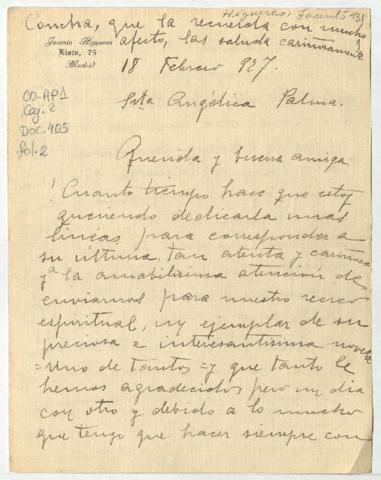 Higueras, Jacinto 431
Concha, que la recuerda con mucho
afecto, las saluda cariñosamente
Jacinto Higueras
Lista, 75
Madrid
18 Febrero 927.
CO-AP1
Caj. 2
Doc. 405
fol. 2
Srta Angélica Palma.
Querida y buena amiga
¡Cuanto tiempo hace que estoy
queriendo dedicarla unas
lineas, para corresponder a
su última, tan atenta y cariñosa
y a la amabilisima atención de
enviarnos para nuestro recreo
espiritual, un ejemplar de su
preciosa e interesantisima novela
=Uno de tantos= y que tanto le
hemos agradecido; pero un dia
con otro y debido a lo mucho
que tengo que hacer siempre con